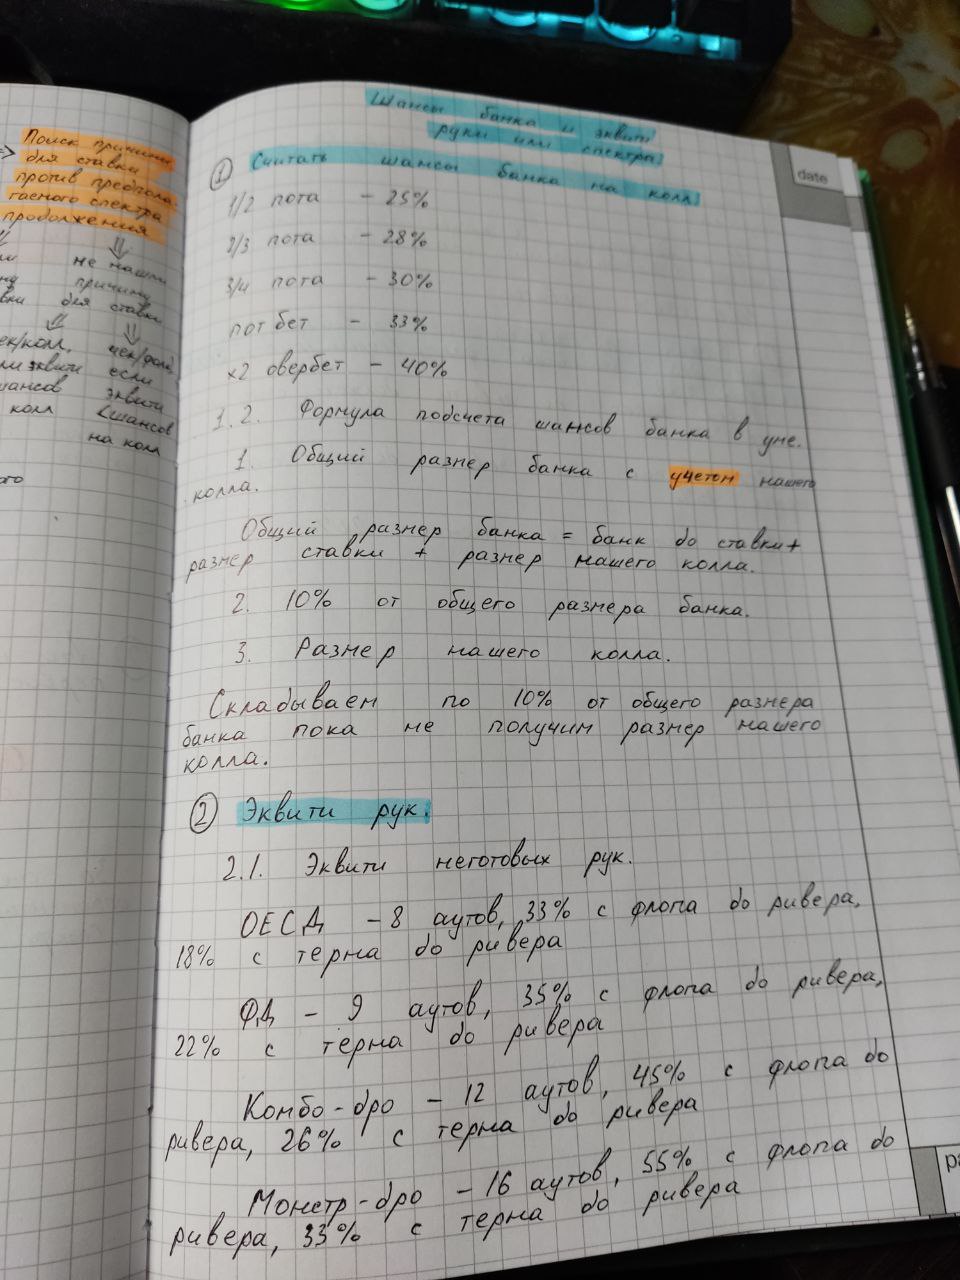 => Поиск причины
для ставки
против предпола-
гаемого спектра
продолжения
не нашли
причину
для ставки
чек/колл, чек/фолд
эквити если
шансов эквити
колл <шансов
на колл
Шансы банка и эквити
руки или спектра
1 Считать шансы банка на колл
1/2 пота - 25%
2/3 пота - 28%
3/4 пота - 30%
пот бет - 33%
x2 овербет - 40%
1.2. Формула подсчета шансов банка в уме.
1. Общий размер банка с учетом нашего
колла.
Общий размер банка = банк до ставки +
размер ставки + размер нашего колла.
2. 10% от общего размера банка.
3. Размер нашего колла.
Складываем по 10% от общего размера
банка пока не получим размер нашего
колла.
2 Эквити рук.
2.1. Эквити неготовых рук.
ОЕСД - 8 аутов, 33% с флопа до ривера,
18% с терна до ривера
ФД - 9 аутов, 35% с флопа до ривера,
22% с терна до ривера
Комбо-дро - 12 аутов, 45% с флопа до
ривера, 26% с терна до ривера
Монстр-дро - 16 аутов, 55% с флопа до
ривера, 33% с терна до ривера
date